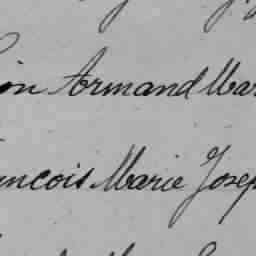 in Armand Mar
ncois Marie Josep